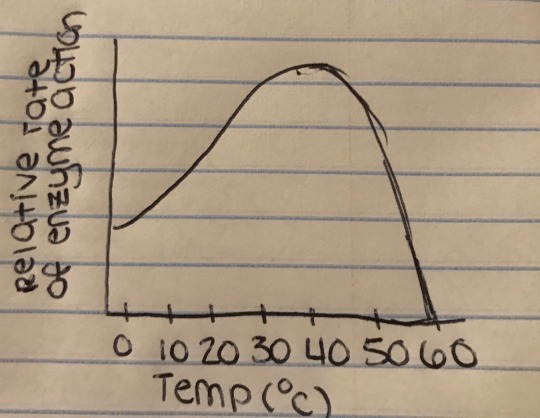 Relative rate
of enzyme action
0 10 20 30 40 50 60
Temp (°C)